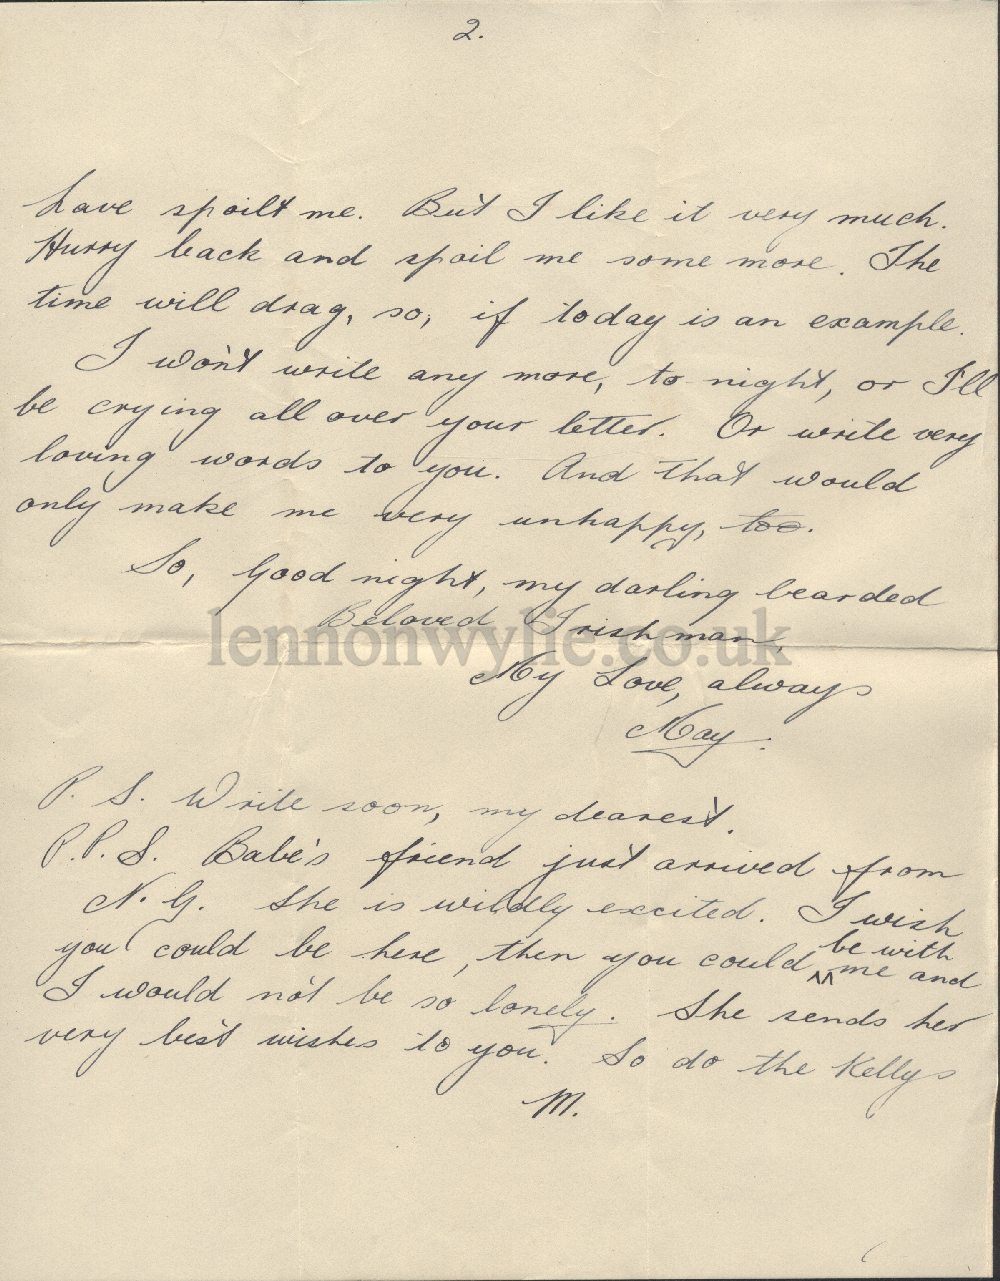 2.
have spoilt me. But I like it very much.
Hurry back and spoil me some more. The
time will drag, so, if today is an example.
I won't write any more, to-night, or I'll
be crying all over your letter. Or write very
loving words to you. And that would
only make me very unhappy, too.
So, Good night, my darling bearded
Beloved Irishman,
lennonwylie.co.uk
My Love, always
May.
P.S. Write soon, my dearest.
P.P.S. Babe's friend just arrived from
N.G. She is wildly excited. I wish
you could be here, then you could be with me and
I would not be so lonely. She sends her
very best wishes to you. So do the Kellys
M.